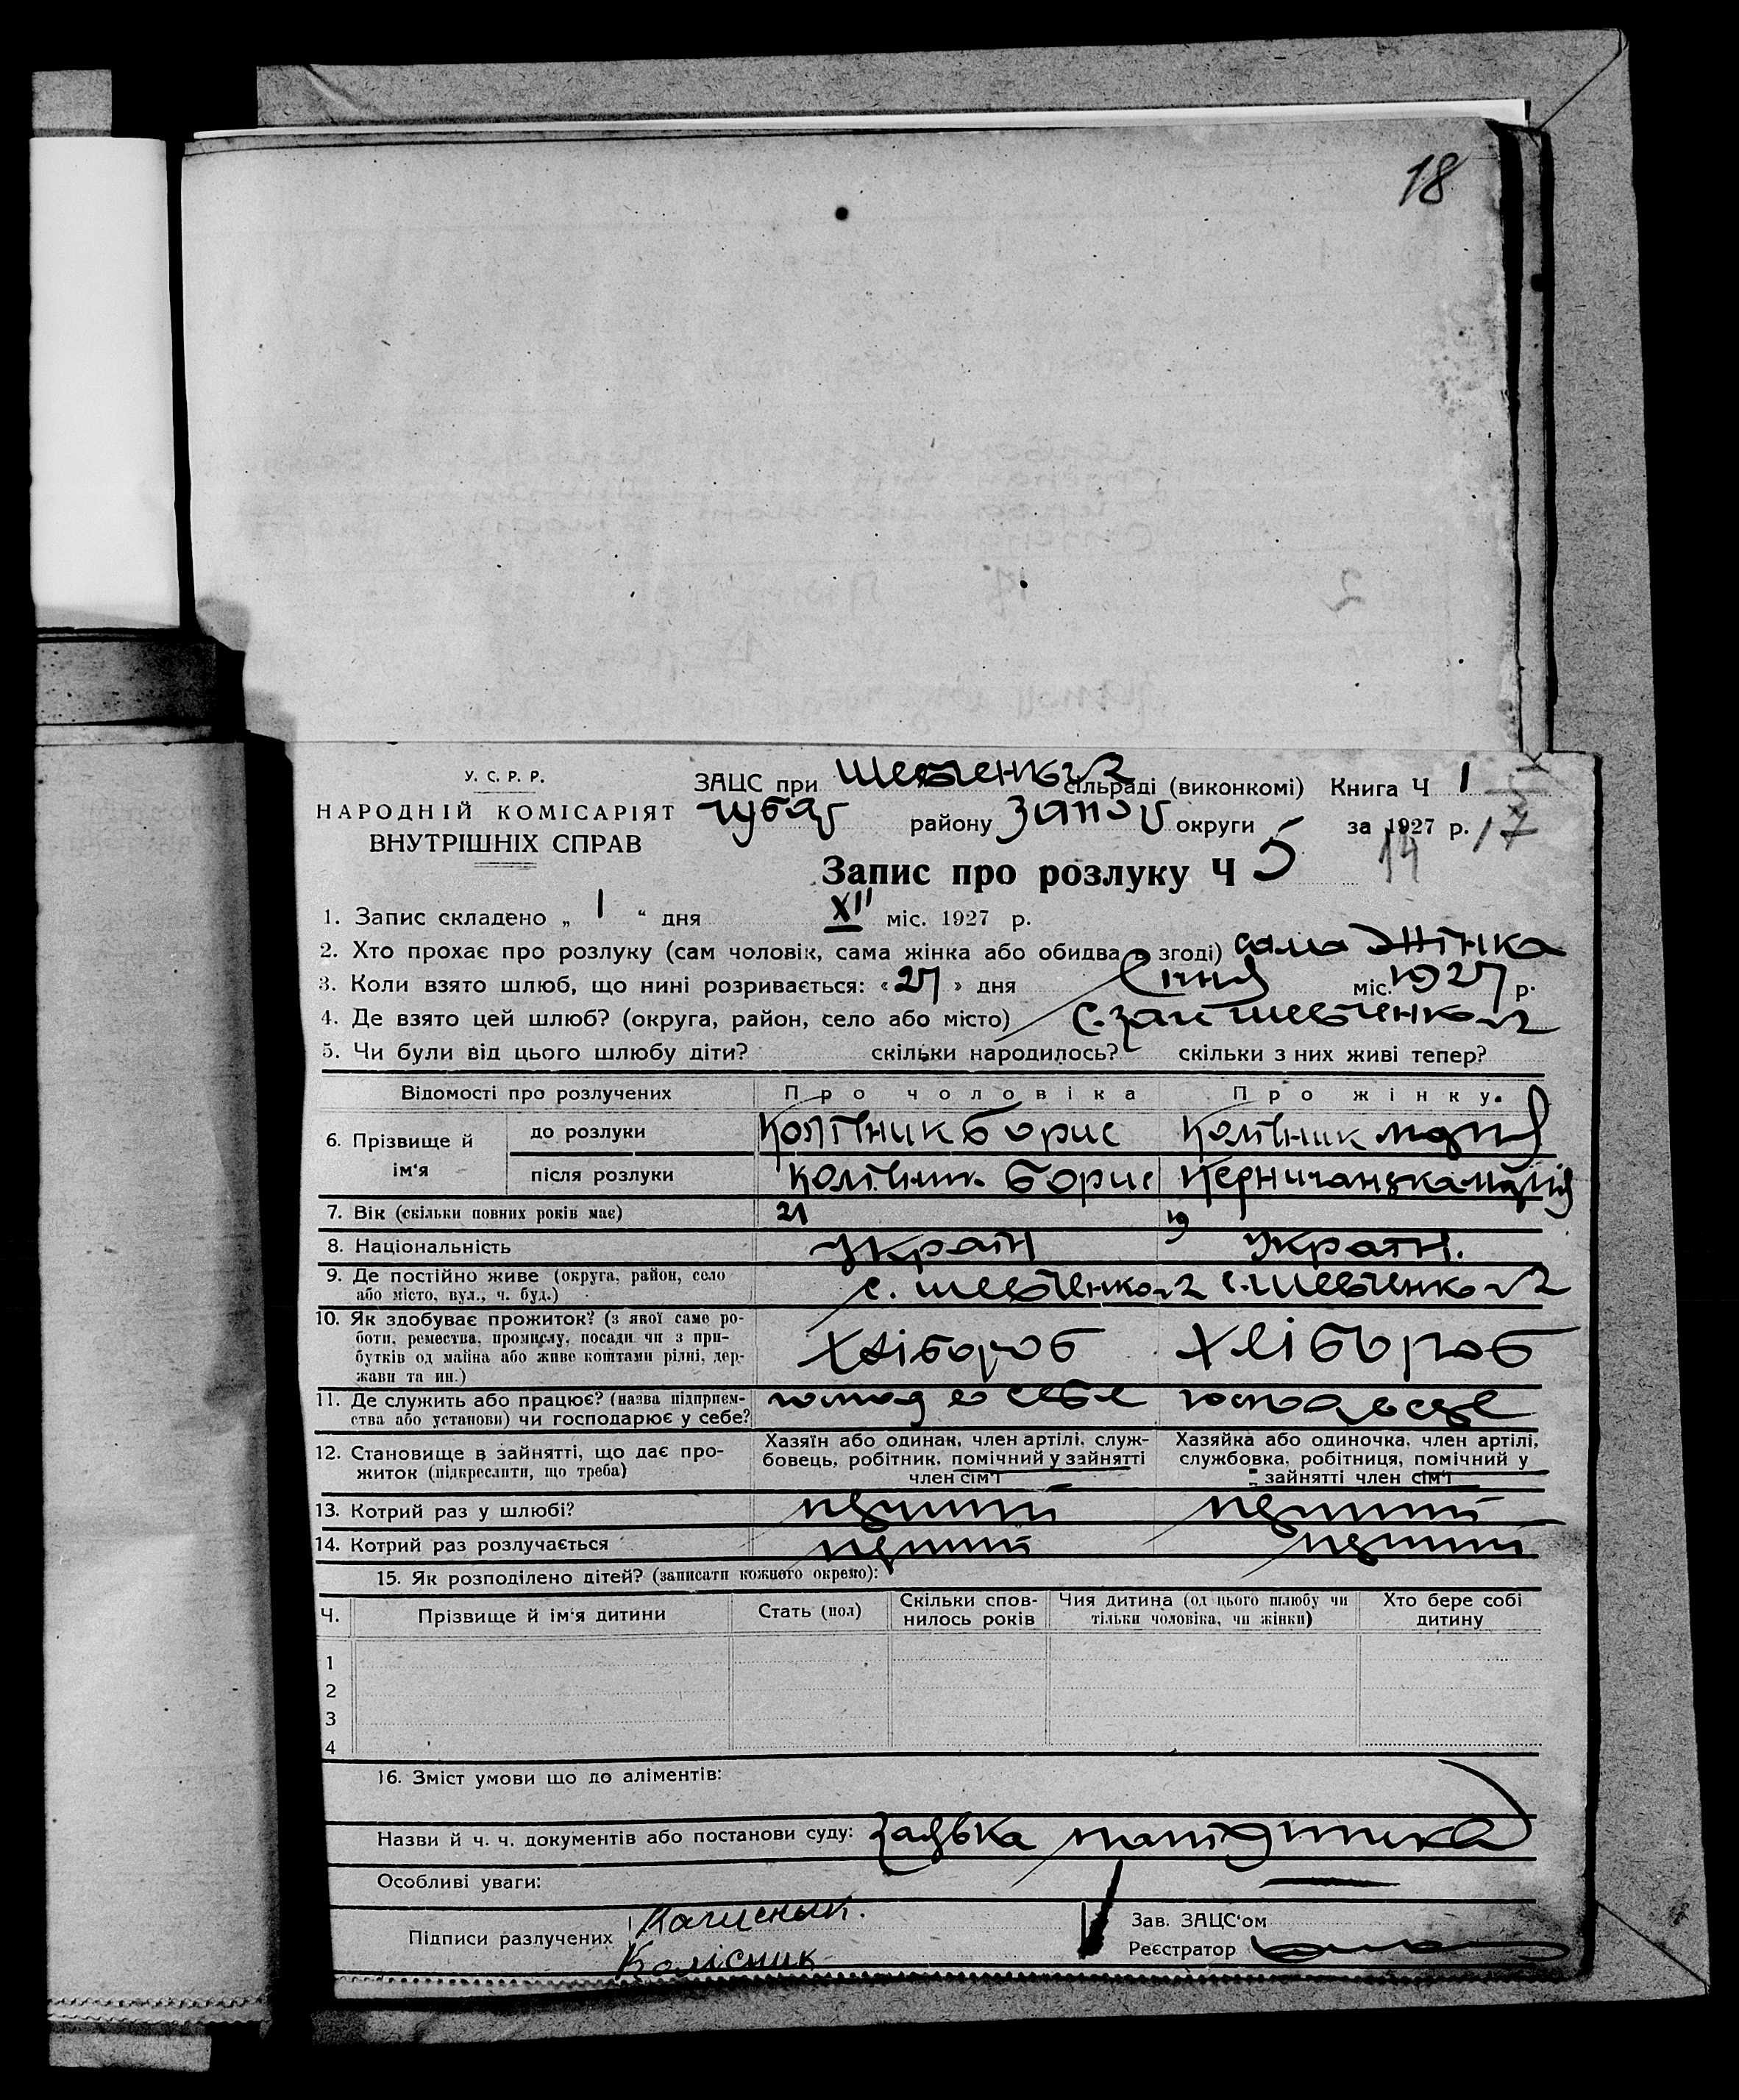 18
У. С. Р. Р.
НАРОДНІЙ КОМІСАРІЯТ
ВНУТРІШНІХ СПРАВ
ЗАЦС при сільраді (виконкомі) Книга Ч 1
району округи за 1927 р. 17
Запис про розлуку Ч 5 14
1. Запис складено „ 1 “ дня XII міс. 1927 р.
2. Хто прохає про розлуку (сам чоловік, сама жінка або обидва в згоді) сама жінка
3. Коли взято шлюб, що нині розривається: «27» дня Січня міс. 1927 р.
4. Де взято цей шлюб? (округа, район, село або місто)
5. Чи були від цього шлюбу діти? скільки народилось? скільки з них живі тепер?
Відомості про розлучених Про чоловіка Про жінку.
6. Прізвище й ім‘я
до розлуки Борис
після розлуки Борис
7. Вік (скільки повних років має) 21 19
8. Національність Україн Україн.
9. Де постійно живе (округа, район, село
або місто, вул., ч. буд.)
10. Як здобуває прожиток? (з якої саме ро-
боти, ремества, промислу, посади чи з при-
бутків од майна або живе коштами рідні, дер-
жави та ин.) Хлібороб Хлібороб
11. Де служить або працює? (назва підприєм-
ства або установи) чи господарює у себе?
12. Становище в зайнятті, що дає про-
житок (підкреслити, що треба)
Хазяїн або одинак, член артілі, служ-
бовець, робітник, помічний у зайнятті
член сім‘ї
Хазяйка або одиночка, член артілі,
службовка, робітниця, помічний у
зайнятті член сім‘ї
13. Котрий раз у шлюбі? перший перший
14. Котрий раз розлучається перший перший
15. Як розподілено дітей? (записати кожного окремо):
Ч. Прізвище й ім‘я дитини Стать (пол) Скільки спов-
нилось років Чия дитина (од цього шлюбу чи
тільки чоловіка, чи жінки) Хто бере собі
дитину
1
2
3
4
16. Зміст умови що до аліментів:
Назви й ч. ч. документів або постанови суду: заявка
Особливі уваги:
Підписи разлучених
Колісник
Зав. ЗАЦС‘ом
Реєстратор